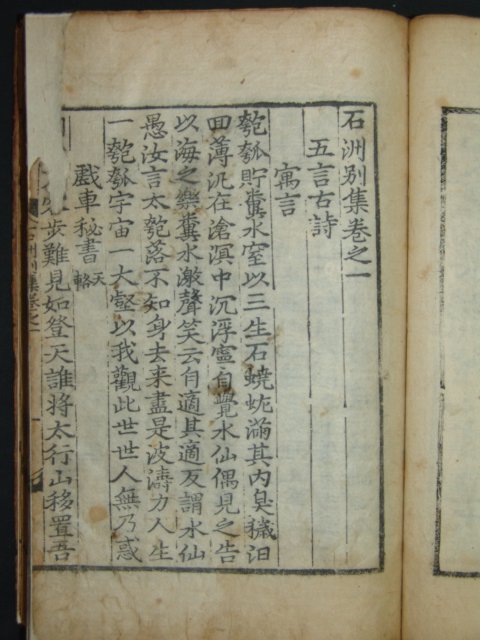 石洲別集卷之一
五言古詩
寓言
匏瓠貯糞水窒以三生石蟯蚘滿其內臭穢汨
回薄汎在滄溟中沉浮寧自覺水仙偶見之告
以海之樂糞水激聲笑云自適其適反謂水仙
愚汝言太匏落不知身去来盡是波濤力人生
一匏瓠宇宙一大壑以我觀此世世人無乃惑
戱車秘書天輅
步難見如登天誰將太行山移置吾